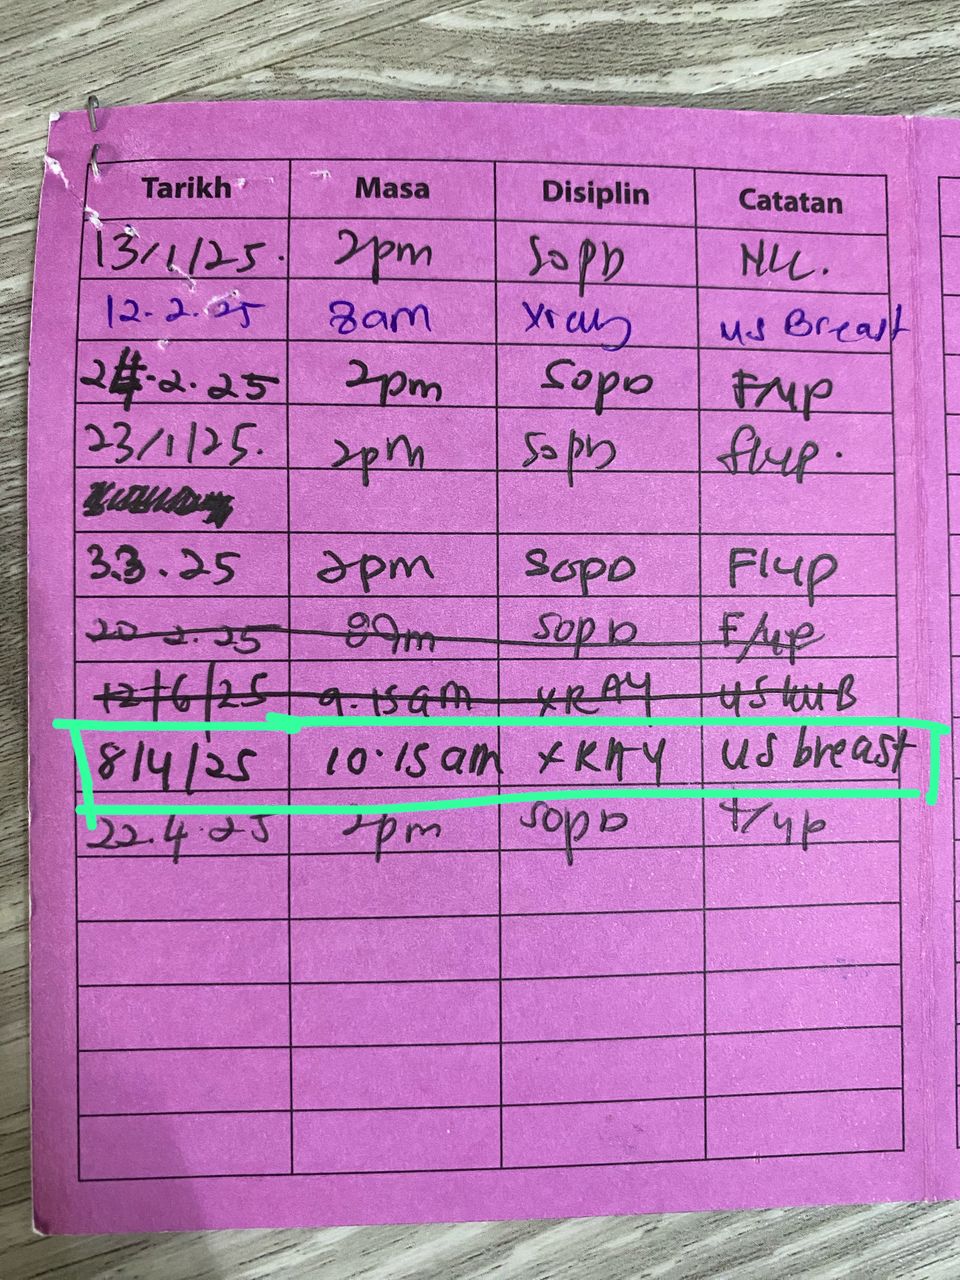 Tarikh Masa Disiplin Catatan
13/1/25. 2pm SOPD
12.2.25 8am Xray US Breast
24.2.25 2pm SOPD F/up
23/1/25. 2pm SOPD f/up.
3.3.25 2pm SOPD F/up
20 2.25 SOPD F/up
12/6/25 9.15am XRAY US KUB
8/4/25 10.15am XRAY US breast
22.4.25 2pm SOPD f/up